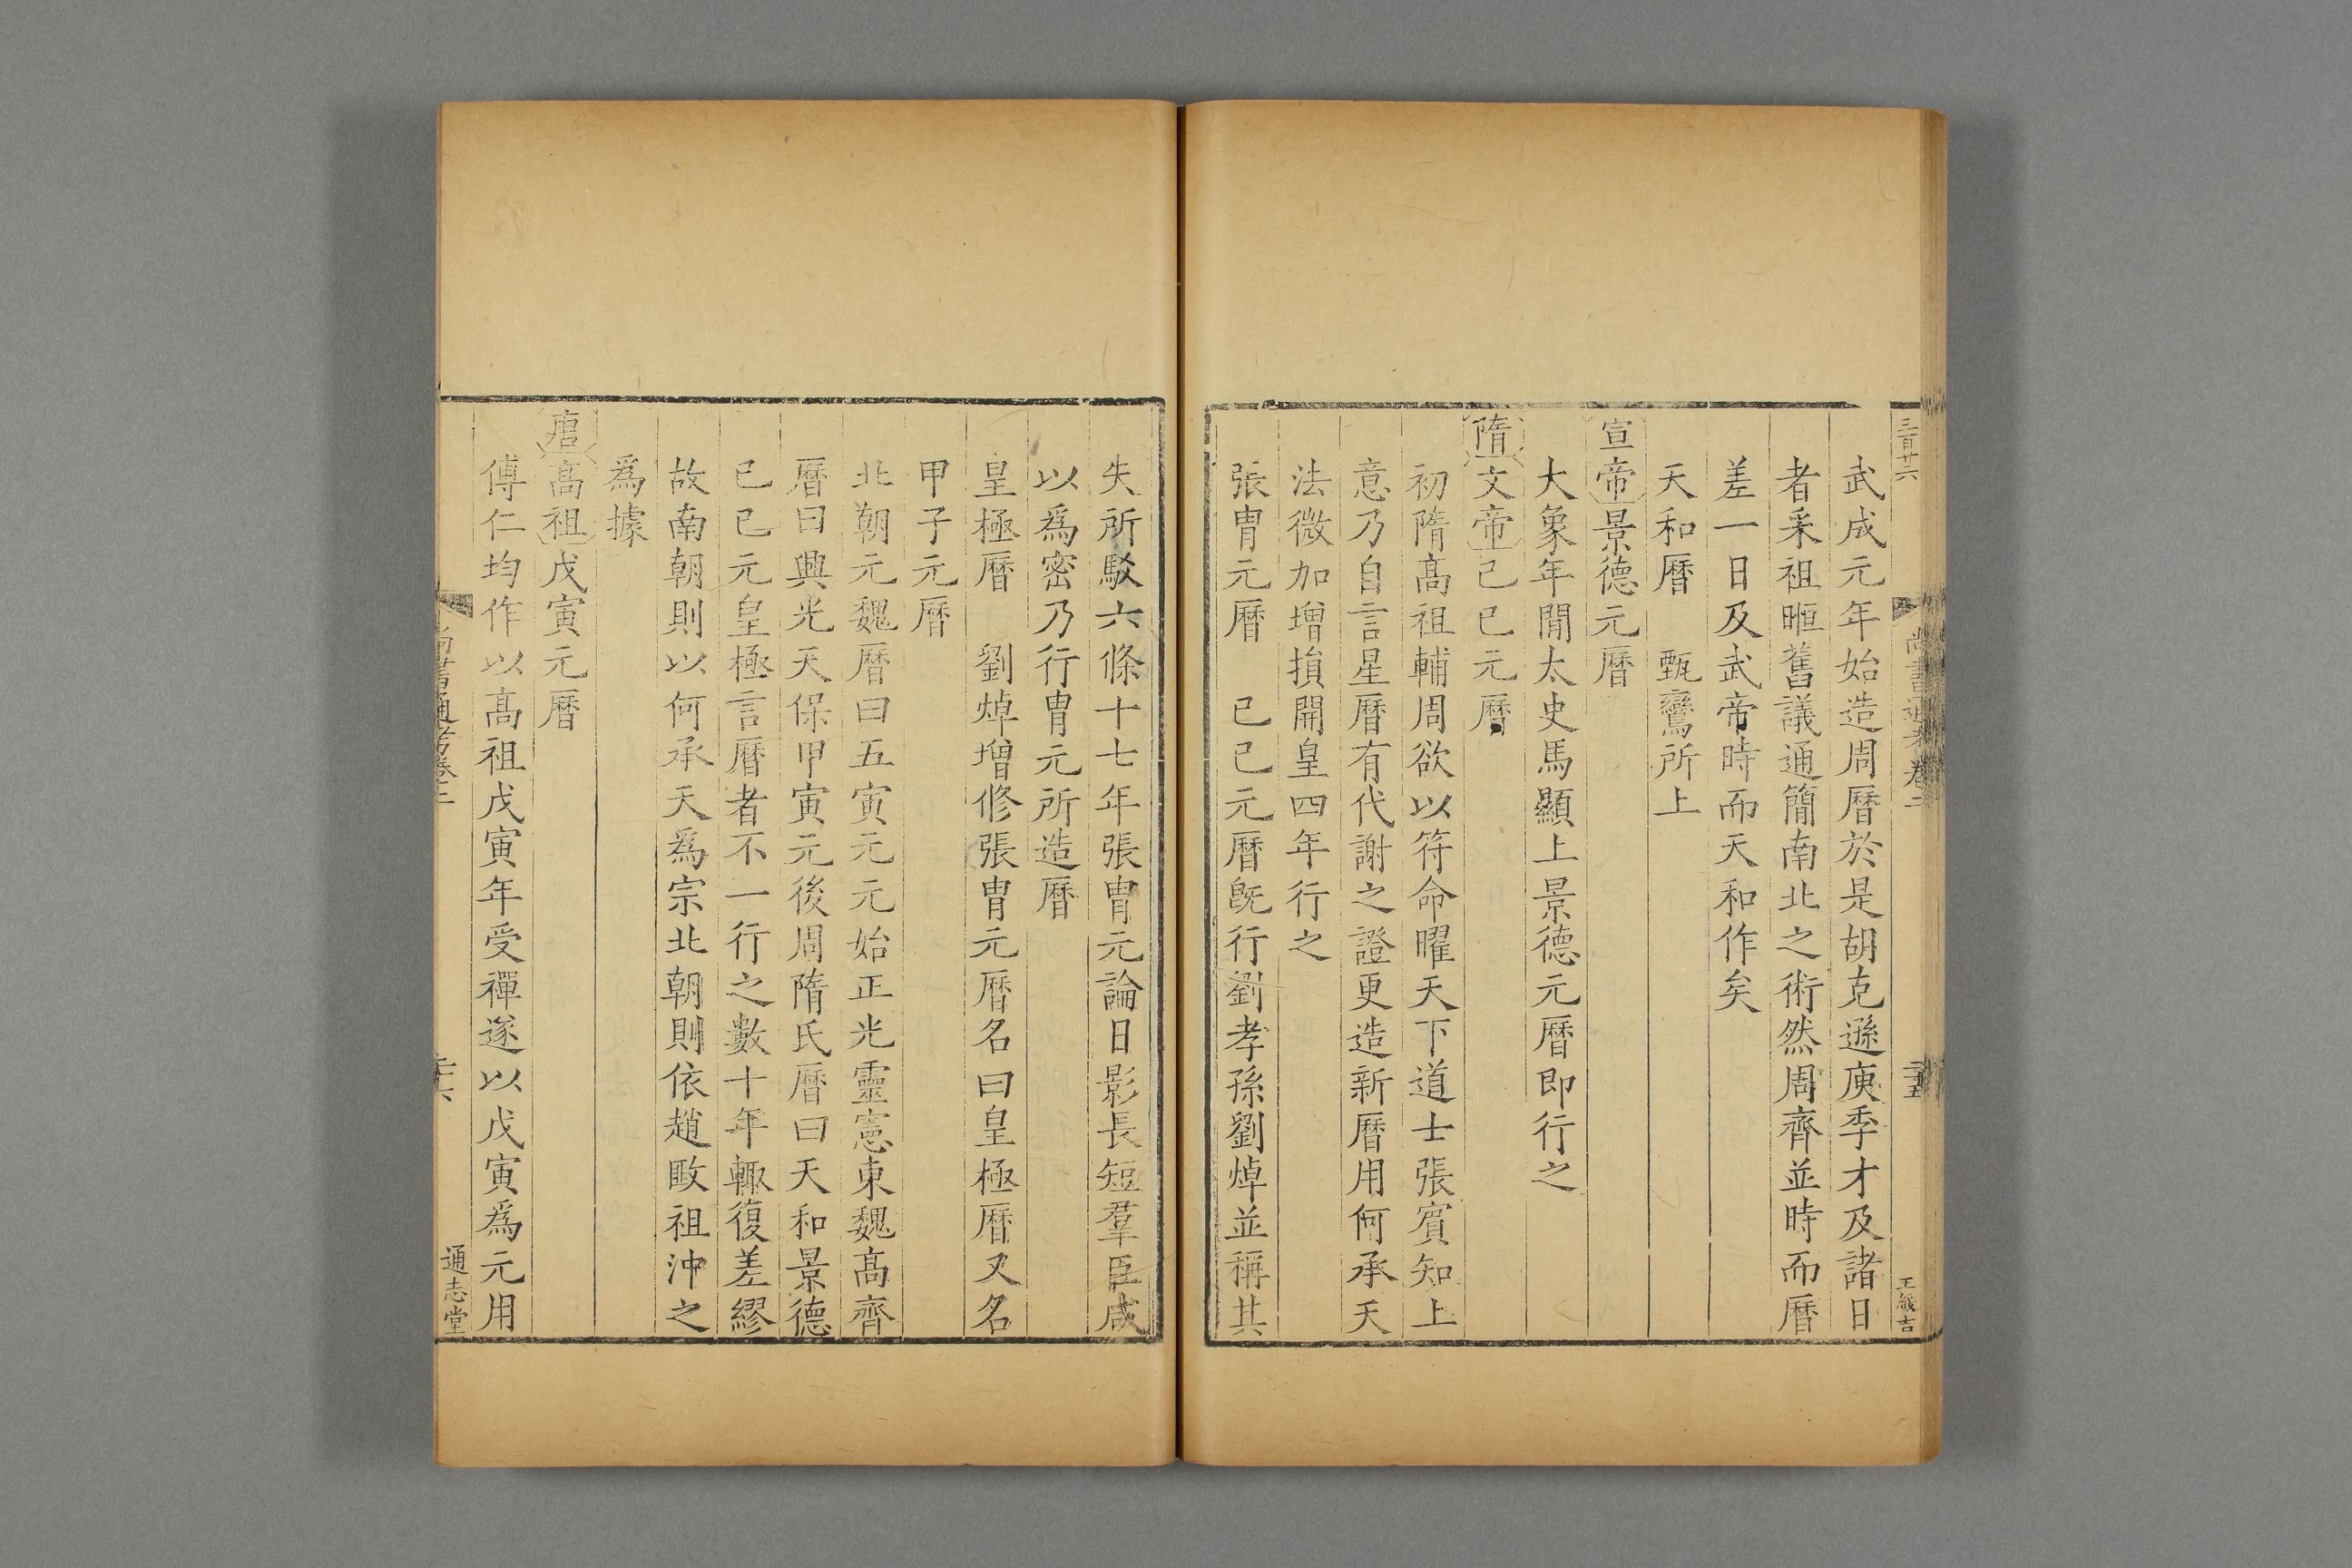 三百廿六
尚書通考卷二
二十五
王箴吉
武成元年始造周曆於是胡克遜庾季才及諸日
者采祖暅舊議通簡南北之術然周齊並時而曆
差一日及武帝時而天和作矣
天和曆　甄鸞所上
宣帝景德元曆
大象年間太史馬顯上景德元曆即行之
隋文帝己巳元曆
初隋髙祖輔周欲以符命曜天下道士張賓知上
意乃自言星曆有代謝之證更造新曆用何承天
法微加增損開皇四年行之
張胄元曆　己巳元曆旣行劉孝孫劉焯並稱其
失所駮六條十七年張胄元論日影長短羣臣咸
以爲密乃行胄元所造曆
皇極曆　劉焯增修張胄元曆名曰皇極曆又名
甲子元曆
北朝元魏曆曰五寅元元始正光靈憲東魏髙齊
曆曰興光天保甲寅元後周隋氏曆曰天和景德
己巳元皇極言曆者不一行之數十年輒復差繆
故南朝則以何承天爲宗北朝則依趙𣤶祖沖之
爲據
唐髙祖戊寅元曆
傅仁均作以髙祖戊寅年受禪遂以戊寅爲元用
尚書通考卷二
二十六
通志堂